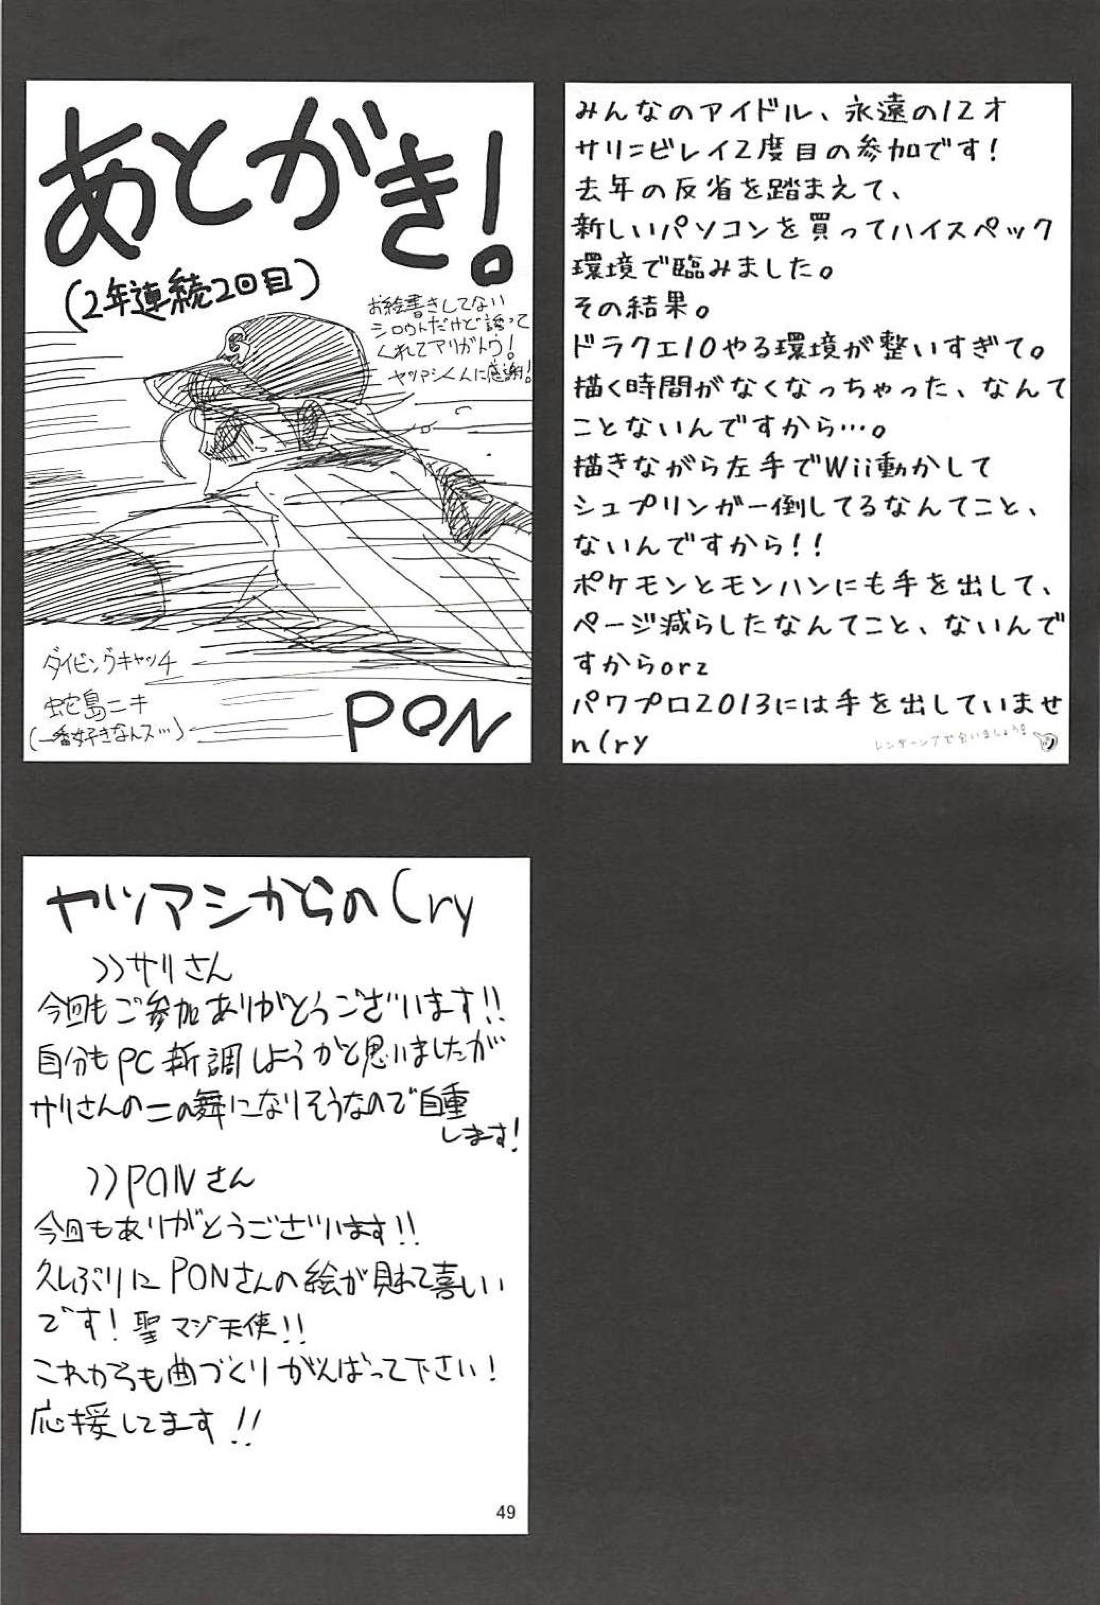 あとがき!
(2年連続2回目)
お絵書きしてない
シロウトだけど誘って
くれてアリガトウ!
ヤツアシくんに感謝!
ダイビングキャッチ
蛇島ニキ
(一番好きなんス…)
PON
みんなのアイドル、永遠の12才
サリ=ビレイ2度目の参加です!
去年の反省を踏まえて、
新しいパソコンを買ってハイスペック
環境で臨みました。
その結果。
ドラクエ10やる環境が整いすぎて。
描く時間がなくなっちゃった、なんて
ことないんですから…。
描きながら左手でWii動かして
シュプリンガー倒してるなんてこと、
ないんですから!!
ポケモンとモンハンにも手を出して、
ページ減らしたなんてこと、ないんで
すからorz
パワプロ2013には手を出していませ
n(ry
レンダーシアで会いましょうぞ
ヤツアシからの(ry
>>サリさん
今回もご参加ありがとうございます!!
自分もPC新調しようかと思いましたが
サリさんの二の舞になりそうなので自重
します!
>>PONさん
今回もありがとうございます!!
久しぶりにPONさんの絵が見れて喜しい
です!聖マジ天使!!
これからも曲づくりがんばって下さい!
応援してます!!
49